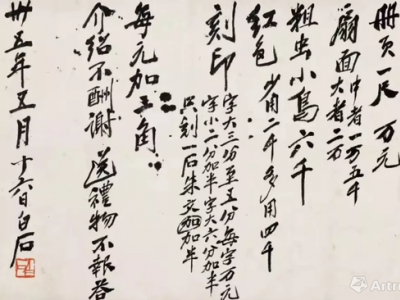 册页一尺万元
扇面中者一万五千
大者二万
粗虫小鸟六千
红色少用二千多用四千
刻印字大三分至五分每字万元
字小二分加半字大六分加半
只刻一石朱文加半
每元加三角
介绍不酬谢送禮物不報答
卅五年五月十六日白石
Artron